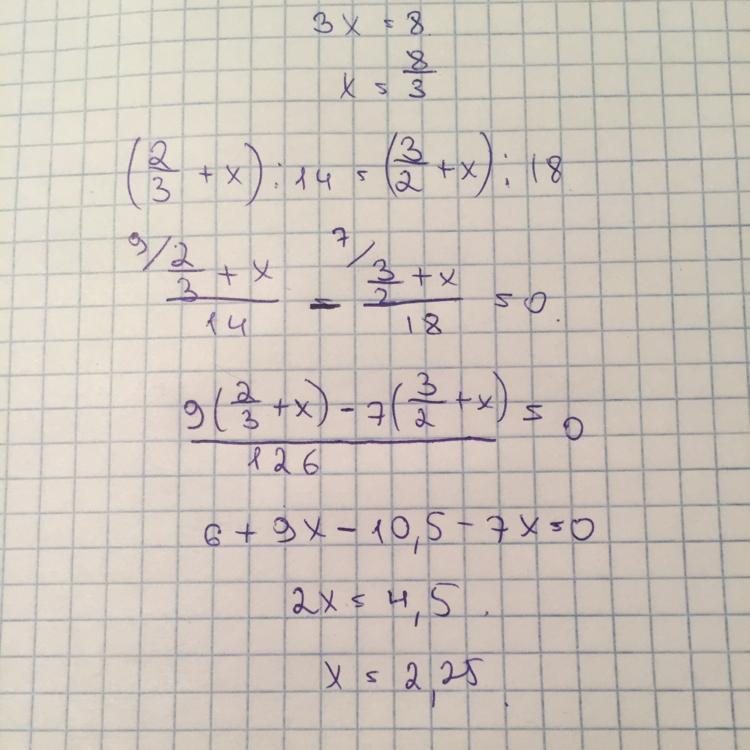 3x = 8
x = 8/3
(2/3 + x) : 14 = (3/2 + x) : 18
9/ (2/3 + x)/14 - 7/ (3/2 + x)/18 = 0.
(9(2/3 + x) - 7(3/2 + x))/126 = 0
6 + 9x - 10,5 - 7x = 0
2x = 4,5.
x = 2,25.